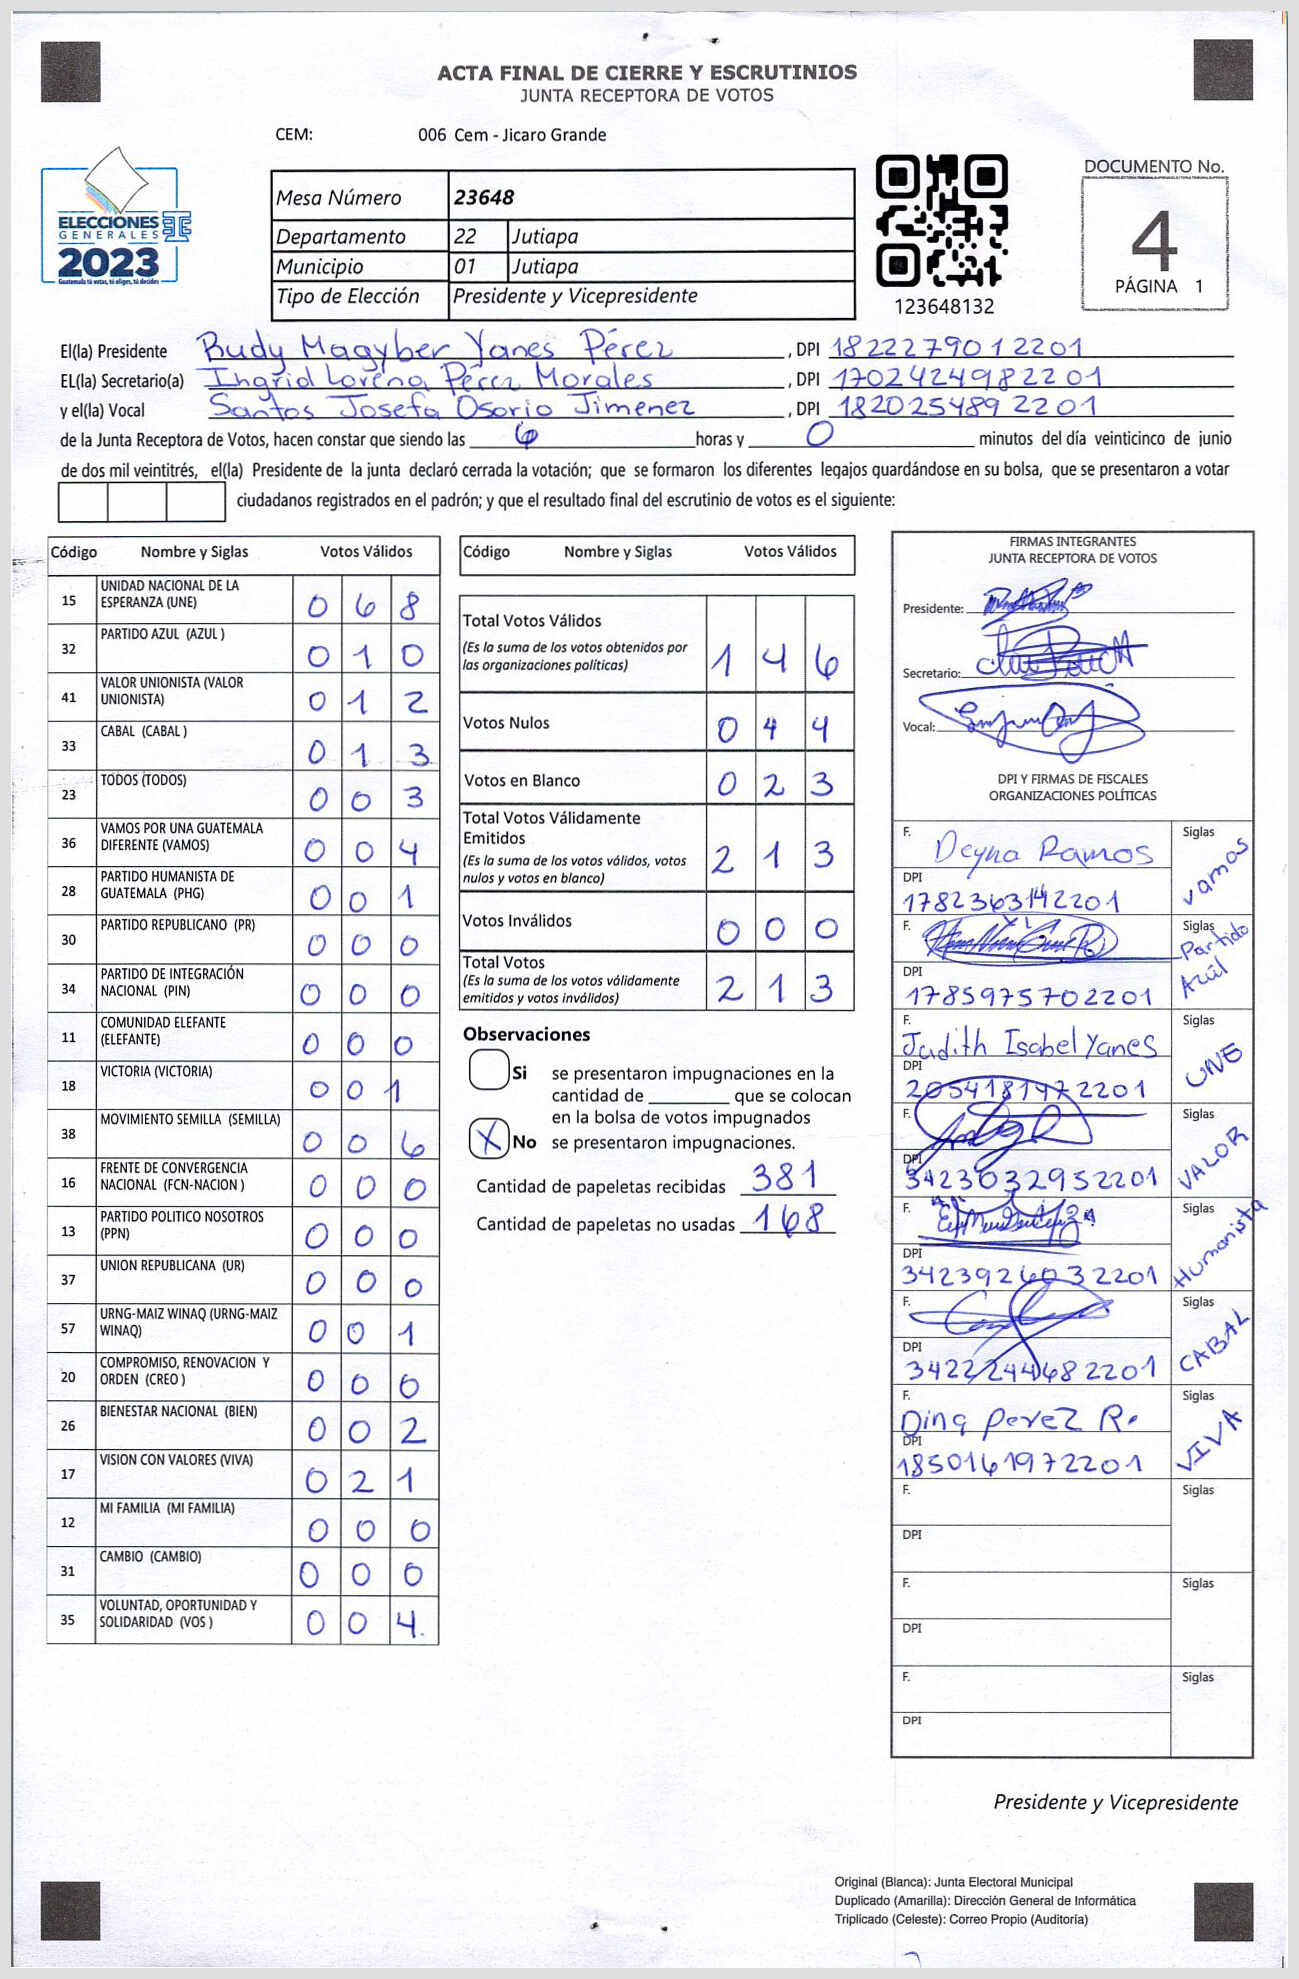 ACTA FINAL DE CIERRE Y ESCRUTINIOS
JUNTA RECEPTORA DE VOTOS
CEM: 006 Cem - Jicaro Grande
ELECCIONES
GENERALES
2023
Guatemala tú votas, tú eliges, tú decides
Mesa Número 23648
Departamento 22 Jutiapa
Municipio 01 Jutiapa
Tipo de Elección Presidente y Vicepresidente
123648132
DOCUMENTO No.
4
PÁGINA 1
El(la) Presidente Rudy Magyber Yanes Pérez, DPI 1822279012201
EL(la) Secretario(a) Ingrid Lorena Pérez Morales, DPI 1702424982201
y el(la) Vocal Santos Josefa Osorio Jimenez, DPI 1820254892201
de la Junta Receptora de Votos, hacen constar que siendo las 6 horas y 0 minutos del día veinticinco de junio
de dos mil veintitrés, el(la) Presidente de la junta declaró cerrada la votación; que se formaron los diferentes legajos guardándose en su bolsa, que se presentaron a votar
ciudadanos registrados en el padrón; y que el resultado final del escrutinio de votos es el siguiente:
Código Nombre y Siglas Votos Válidos
15 UNIDAD NACIONAL DE LA ESPERANZA (UNE) 0 6 8
32 PARTIDO AZUL (AZUL ) 0 1 0
41 VALOR UNIONISTA (VALOR UNIONISTA) 0 1 2
33 CABAL (CABAL ) 0 1 3
23 TODOS (TODOS) 0 0 3
36 VAMOS POR UNA GUATEMALA DIFERENTE (VAMOS) 0 0 4
28 PARTIDO HUMANISTA DE GUATEMALA (PHG) 0 0 1
30 PARTIDO REPUBLICANO (PR) 0 0 0
34 PARTIDO DE INTEGRACIÓN NACIONAL (PIN) 0 0 0
11 COMUNIDAD ELEFANTE (ELEFANTE) 0 0 0
18 VICTORIA (VICTORIA) 0 0 1
38 MOVIMIENTO SEMILLA (SEMILLA) 0 0 6
16 FRENTE DE CONVERGENCIA NACIONAL (FCN-NACION ) 0 0 0
13 PARTIDO POLITICO NOSOTROS (PPN) 0 0 0
37 UNION REPUBLICANA (UR) 0 0 0
57 URNG-MAIZ WINAQ (URNG-MAIZ WINAQ) 0 0 1
20 COMPROMISO, RENOVACION Y ORDEN (CREO ) 0 0 0
26 BIENESTAR NACIONAL (BIEN) 0 0 2
17 VISION CON VALORES (VIVA) 0 2 1
12 MI FAMILIA (MI FAMILIA) 0 0 0
31 CAMBIO (CAMBIO) 0 0 0
35 VOLUNTAD, OPORTUNIDAD Y SOLIDARIDAD (VOS ) 0 0 4.
Código Nombre y Siglas Votos Válidos
Total Votos Válidos 1 4 6
(Es la suma de los votos obtenidos por
las organizaciones políticas)
Votos Nulos 0 4 4
Votos en Blanco 0 2 3
Total Votos Válidamente
Emitidos 2 1 3
(Es la suma de los votos válidos, votos
nulos y votos en blanco)
Votos Inválidos 0 0 0
Total Votos 2 1 3
(Es la suma de los votos válidamente
emitidos y votos inválidos)
Observaciones
Si se presentaron impugnaciones en la
cantidad de ________ que se colocan
en la bolsa de votos impugnados
X No se presentaron impugnaciones.
Cantidad de papeletas recibidas 381
Cantidad de papeletas no usadas 168
FIRMAS INTEGRANTES
JUNTA RECEPTORA DE VOTOS
Presidente:
Secretario:
Vocal:
DPI Y FIRMAS DE FISCALES
ORGANIZACIONES POLÍTICAS
F. Deyna Ramos Siglas Vamos
DPI
F. Siglas Partido Azúl
DPI 1785975702201
F. Judith Isabel Yanes Siglas UNE
DPI 2054181972201
F. Siglas VALOR
DPI 3423032952201
F. Siglas Humanista
DPI 3423926032201
F. Siglas CABAL
DPI 3422244682201
F. Dina perez R. Siglas VIVA
DPI 1850161972201
F. Siglas
DPI
F. Siglas
DPI
F. Siglas
DPI
Presidente y Vicepresidente
Original (Blanca): Junta Electoral Municipal
Duplicado (Amarilla): Dirección General de Informática
Triplicado (Celeste): Correo Propio (Auditoría)